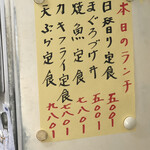 本日のランチ
日替り定食 五〇〇円
まぐろづけ丼 五〇〇円
焼魚定食 七八〇円
カキフライ定食 七八〇円
天ぷら定食 九八〇円